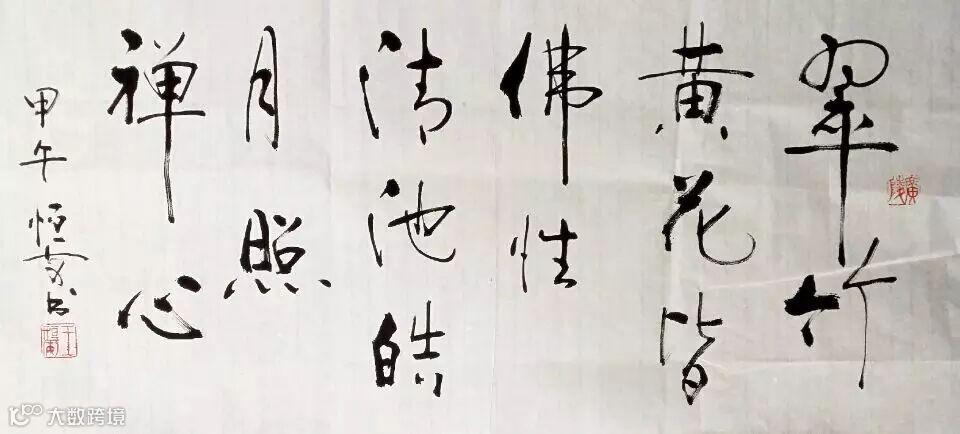 翠竹
黃花皆
佛性
清池皓
月照
禅心
甲午
廣陵
大数跨境